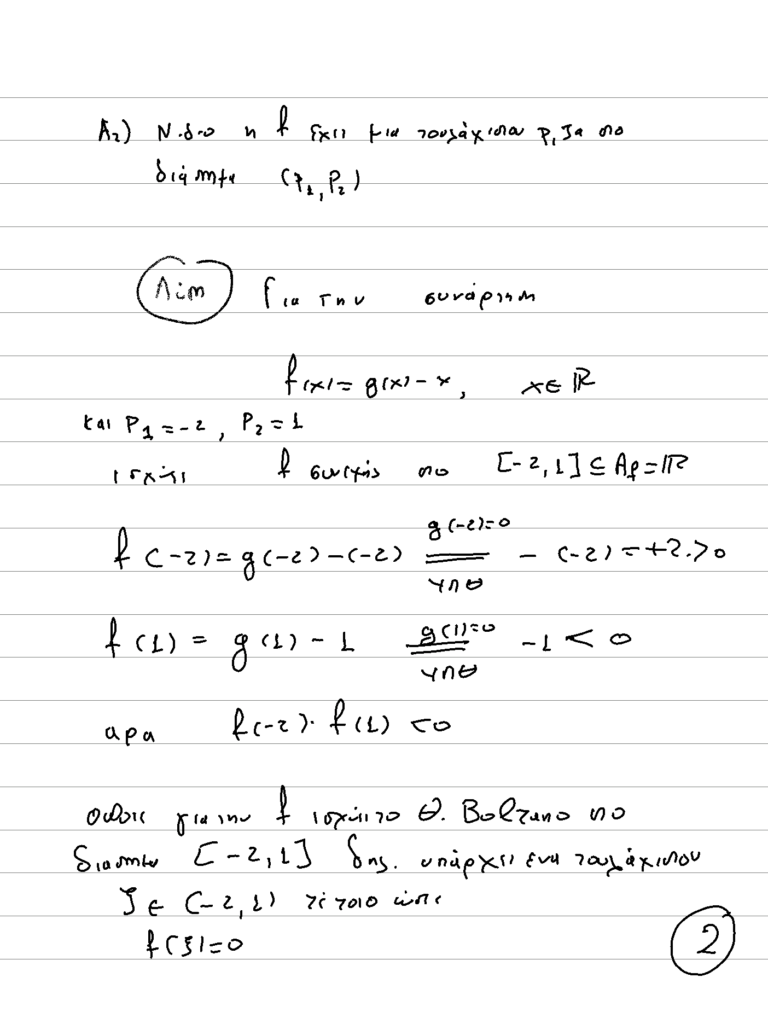 A₂) Ν.δ.ο η f έχει μια τουλάχιστον ρίζα στο
διάστημα (ρ₁, ρ₂)
Λύση Για την συνάρτηση
f(x) = g(x) - x, x ∈ ℝ
και ρ₁ = -2, ρ₂ = 1
ισχύει f συνεχής στο [-2, 1] ⊆ A_f = ℝ
g(-2)=0
f(-2) = g(-2) - (-2) = - (-2) = +2 > 0
υποθ
g(1)=0
f(1) = g(1) - 1 = -1 < 0
υποθ
αρα f(-2) · f(1) < 0
οποτε για την f ισχύει το Θ. Bolzano στο
διαστημα [-2, 1] δηλ. υπάρχει ενα τουλάχιστον
ξ ∈ (-2, 1) τέτοιο ώστε
f(ξ) = 0
2